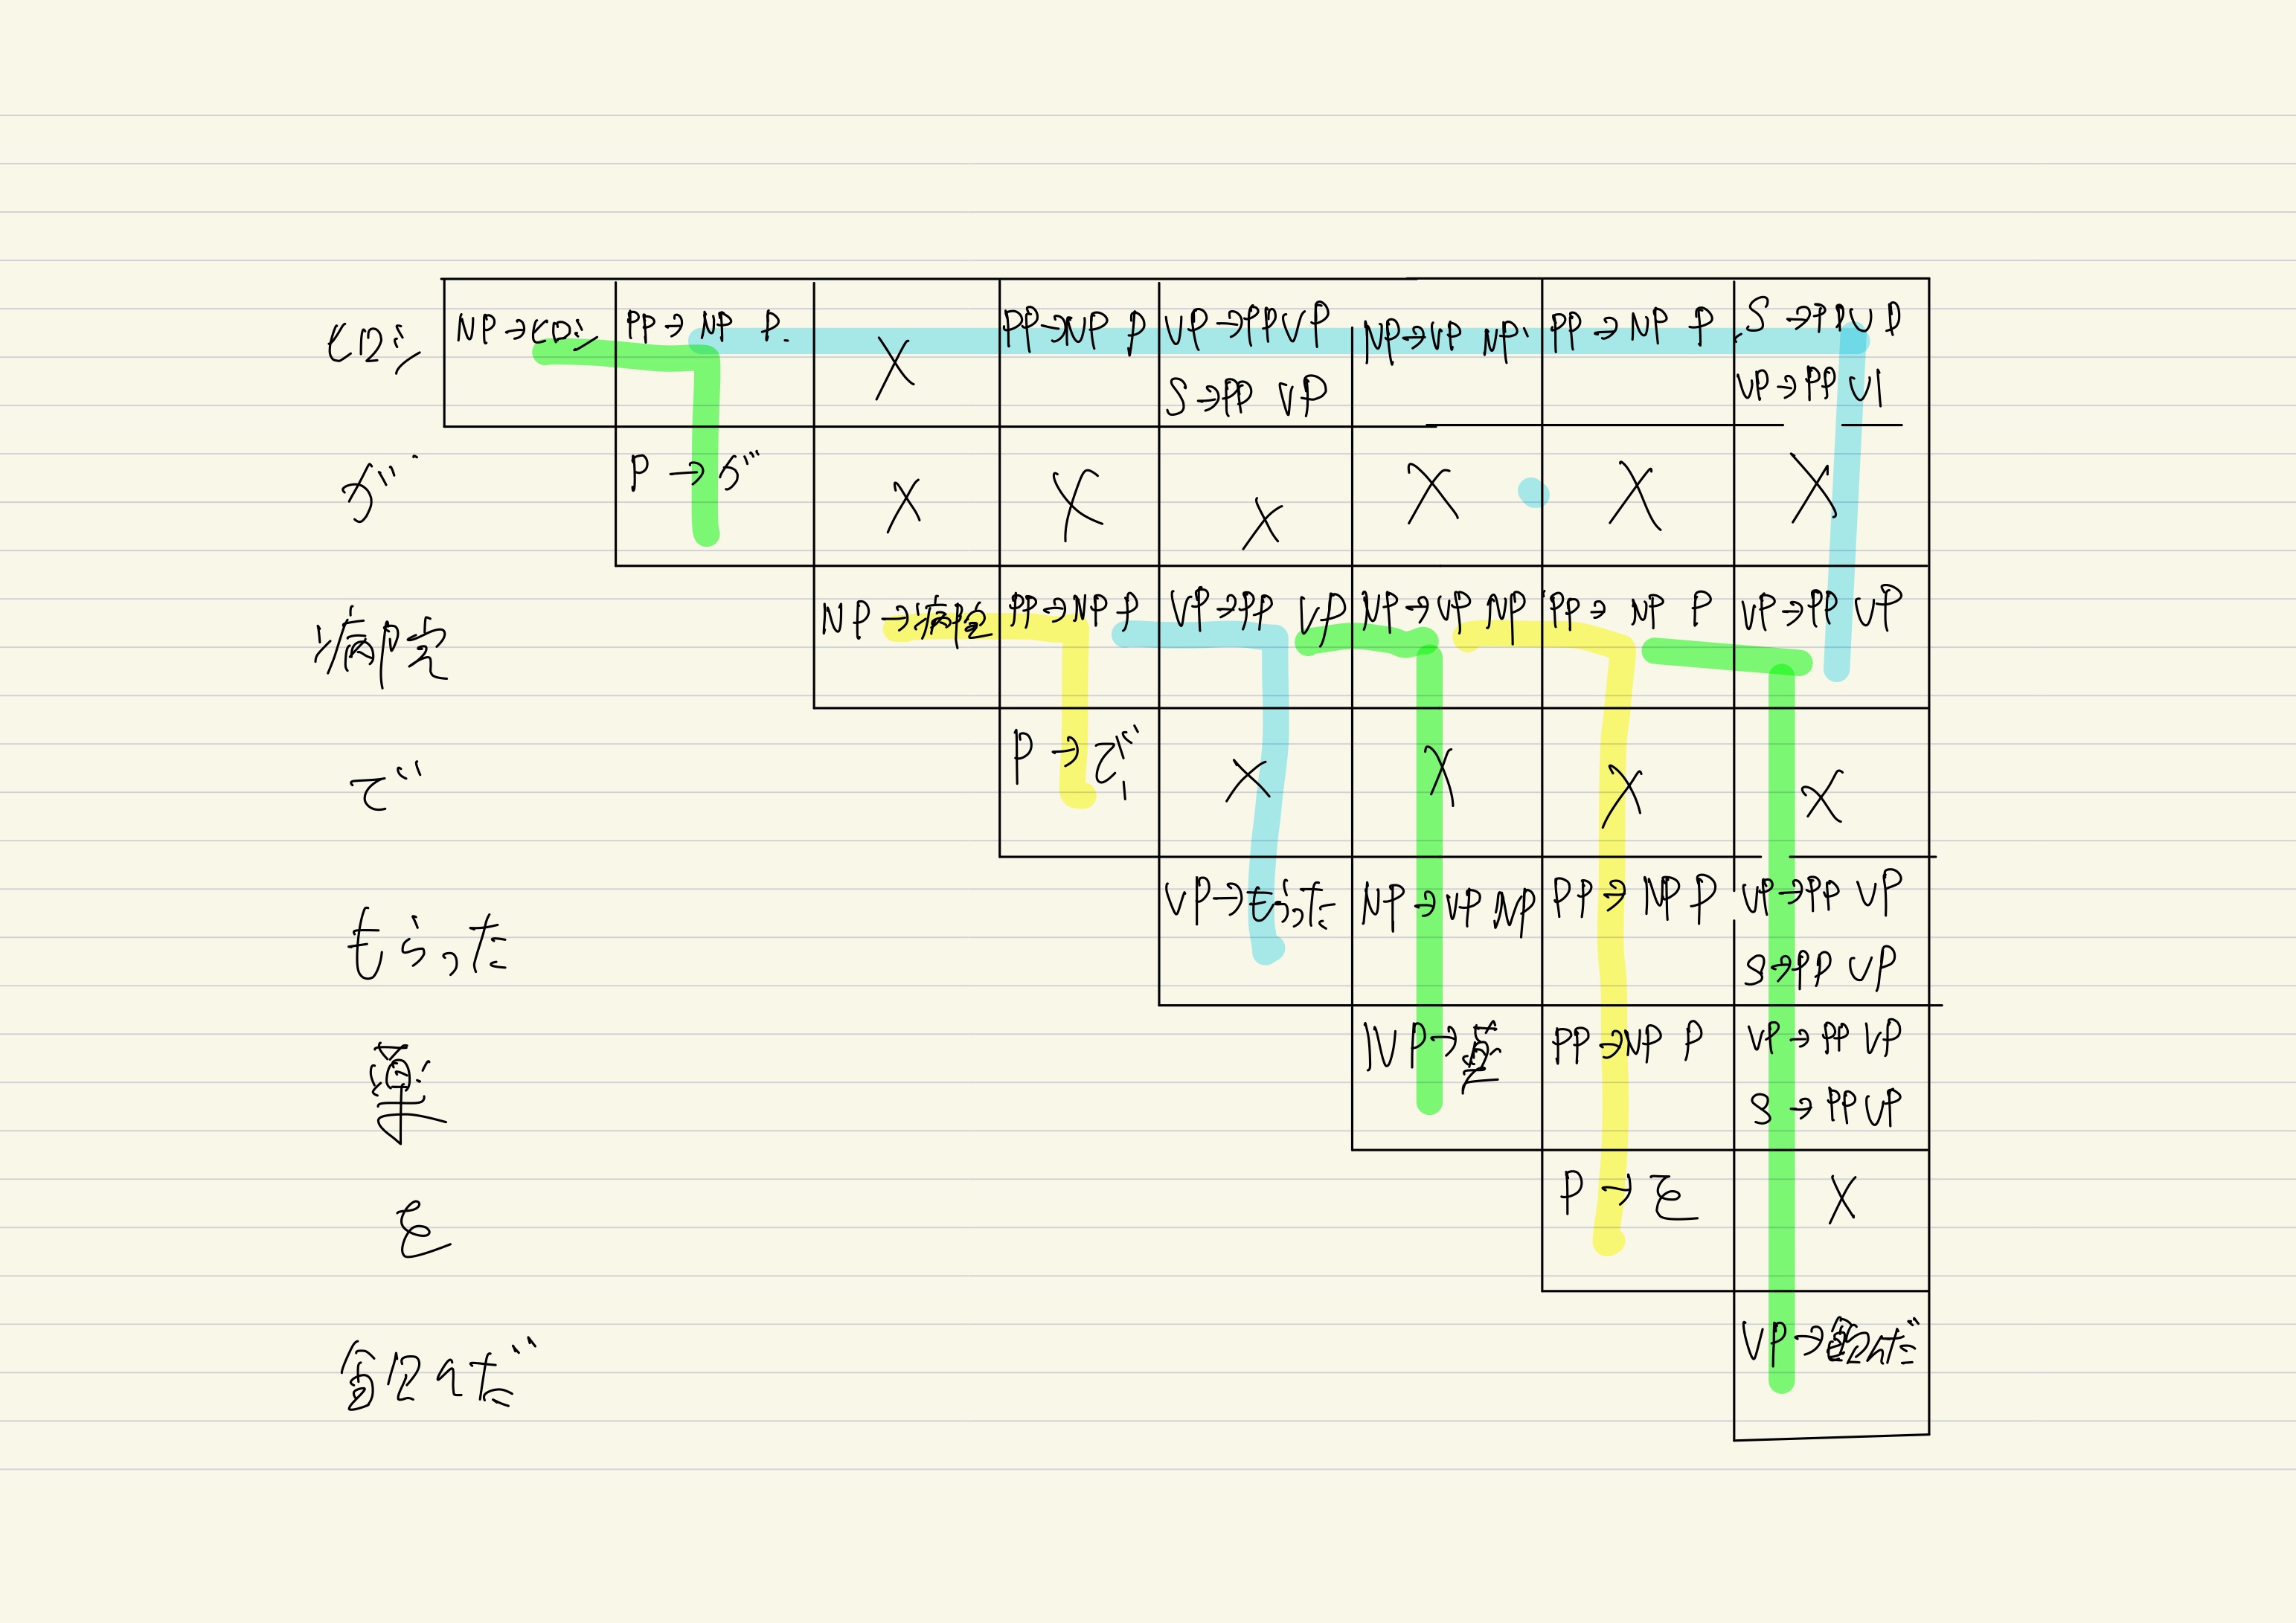 ヒロシ NP→ヒロシ PP→NP P. X PP→NP P VP→PP VP NP→VP NP PP→NP P S→PP VP
S→PP VP VP→PP VP
が P→が X X X X X X
病院 NP→病院 PP→NP P VP→PP VP NP→VP NP PP→NP P VP→PP VP
で P→で X X X X
もらった VP→もらった NP→VP NP PP→NP P VP→PP VP
S→PP VP
薬 PP→NP P VP→PP VP
NP→薬 S→PP VP
を P→を X
飲んだ VP→飲んだ